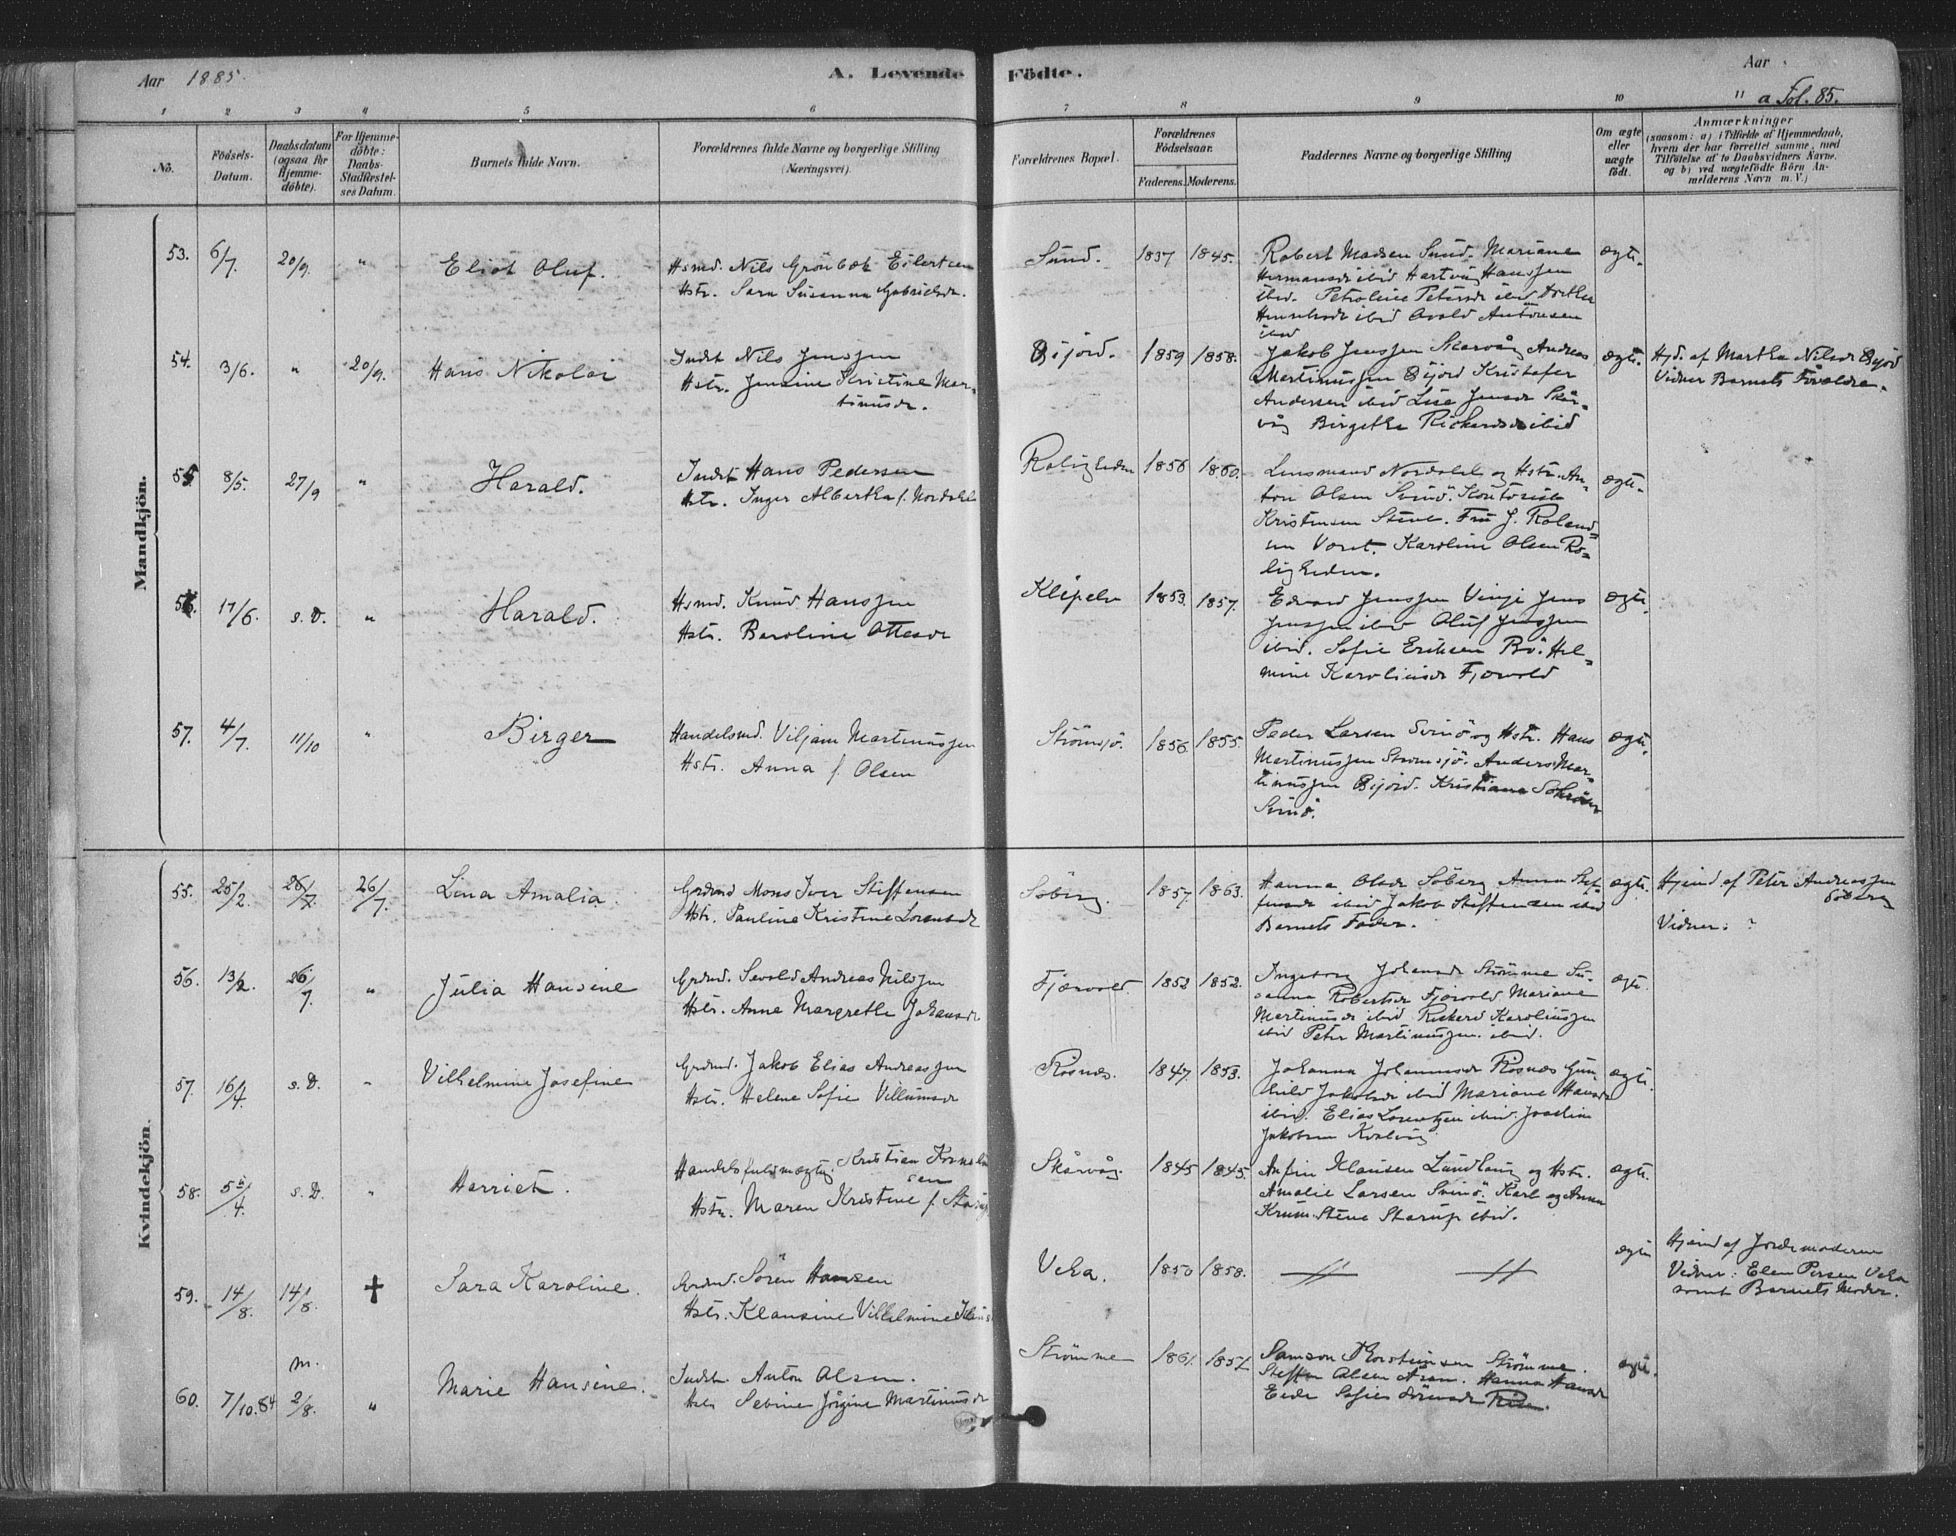 Aar 1885.
A. Levende Födte.
Aar
a Fol. 85.
1 2 3 4 5 6 7 8 9 10 11
No.
Födsels-
Datum.
Daabsdatum
(ogsaa for
Hjemme-
döbte).
For Hjemme-
döbte:
Daabs-
Stadfæstel-
ses Datum.
Barnets fulde Navn.
Forældrenes fulde Navne og borgerlige Stilling
(Næringsvei).
Forældrenes Bopæl.
Forældrenes
Födselsaar.
Faderens. Moderens.
Faddernes Navne og borgerlige Stilling
Om ægte
eller
uægte
födt.
Anmærkninger
(saasom: a) i Tilfælde af Hjemmedaab,
hvem der har forrettet samme, med
Tilföielse af to Daabsvidners Navne,
og b) ved uægtefödte Börn An-
melderens Navn m. V.)
Mandkjön.
53. 6/7. 20/9. " Eliot Oluf.
Hsmd. Nils Grönbek Eilertsen
Hstr. Sara Susanna Gabrielsdr.
Sund. 1837 1845.
Robert Madsen Sund. Mariane
Hermansdr ibid Hartvig Hanssen
ibid. Petroline Petersdr ibid Dorthea
ibid Avold Antonsen
ibid
ægte.
54. 3/6. " 20/9. Hans Nikolai
Indst Nils Jenssen
Hstr. Jensine Kristine Mar-
tinusdr.
Bijord. 1859 1858.
Jakob Jenssen Skarvåg Andreas
Martinussen Bijord Kristofer
Andersen ibid Lise Jensdr Skar-
våg Birgethe Rickardsdr ibid
ægte.
Hjd. af Martha Nilsdr Bijord
Vidner Barnets Forældre.
55. 8/5. 27/9 " Harald.
Indst Hans Pedersen
Hstr. Inger Albertha f. Nordahl
Roligheden 1856 1860.
Lensmand Nordahl og Hstr. An-
ton Olsen Svinö. Kontorist
Kristensen Stene. Fru J. Roland-
sen Voret. Karoline Olsen Ro-
ligheden.
ægte.
56. 17/6. s. D. " Harald.
Hsmd. Knud Hanssen
Hstr. Beroline Ottesdr
Klipeln 1853. 1857.
Edvard Jenssen Vinje Jens
Jenssen ibid Oluf Jenssen
ibid. Sofie Eriksen Bö. Hel-
mine Karolinsdr Fjærvold
ægte.
57. 4/7. 11/10 " Birger
Handelsmd. Viljam Martinussen
Hstr. Anna f. Olsen
Strömsjö. 1856 1855.
Peder Larsen Svinö og Hstr. Hans
Martinussen Strömsjö. Anders Mar-
tinussen Bijord. Kristiane Schröder
Svinö.
ægte.
Kvindekjön.
55. 25/2. 26/7. 26/7. Lina Amalia.
Grdmd Mons Iver Steffensen
Hstr. Pauline Kristine Lorensdr
Söberg. 1857. 1863.
Hanna Olsdr Söberg Anna Stef-
fensdr ibid Jakob Steffensen ibid
Barnets Fader.
ægte.
Hjemd af Peter Andreassen
Söberg
Vidner: ?
56. 13/2. 26/7. " Julia Hansine
Grdmd. Sevald Andreas Nilssen
Hstr. Anne Margrethe Johansdr
Fjærvold 1852 1852.
Ingeborg Johansdr Strömme Su-
sanna Robertsdr Fjærvold Mariane
Martinusdr ibid Rickard Karolinssen
ibid Peter Martinussen ibid.
ægte.
57. 16/4. s. D. " Vilhelmine Josefine
Grdmd. Jakob Elias Andreassen
Hstr. Helene Sofie Villumsdr
Rösnæs. 1847. 1853.
Johanna Johannesdr Rösnæs Gun-
hild Jakobsdr ibid Mariane Hansdr
ibid. Elias Lorentzen ibid. Joachim
Jakobsen Kvalvig
ægte.
58. 5/4. s. D. " Harriet.
Handelsfuldmægtig Kristian Korneliu-
sen
Hstr. Maren Kristine f. Starup
Skårvåg. 1845 1845.
Anfin Klausen Lundtang og Hstr.
Amalie Larsen Svinö. Karl og Anna
Krum. Stene Starup ibid.
ægte.
59. 14/8. 14/8. † Sara Karoline.
Grdmd. Sören Hansen
Hstr. Klausine Vilhelmine
Veka. 1850 1858.
ægte
Hjemd af Jordemoderen
Vidner: Elen Persen Veka
samt Barnets Moder.
60. 7/10.84 m. 2/8. " Marie Hansine.
Indst. Anton Olsen.
Hstr Sebine Jörgine Martinusdr
Strömme 1861. 1857
Samson Thorsteinsen Strömme.
Steffen Olsen Åsen. Hanna Hansdr
Eide Sofie Sörensdr
ægte.